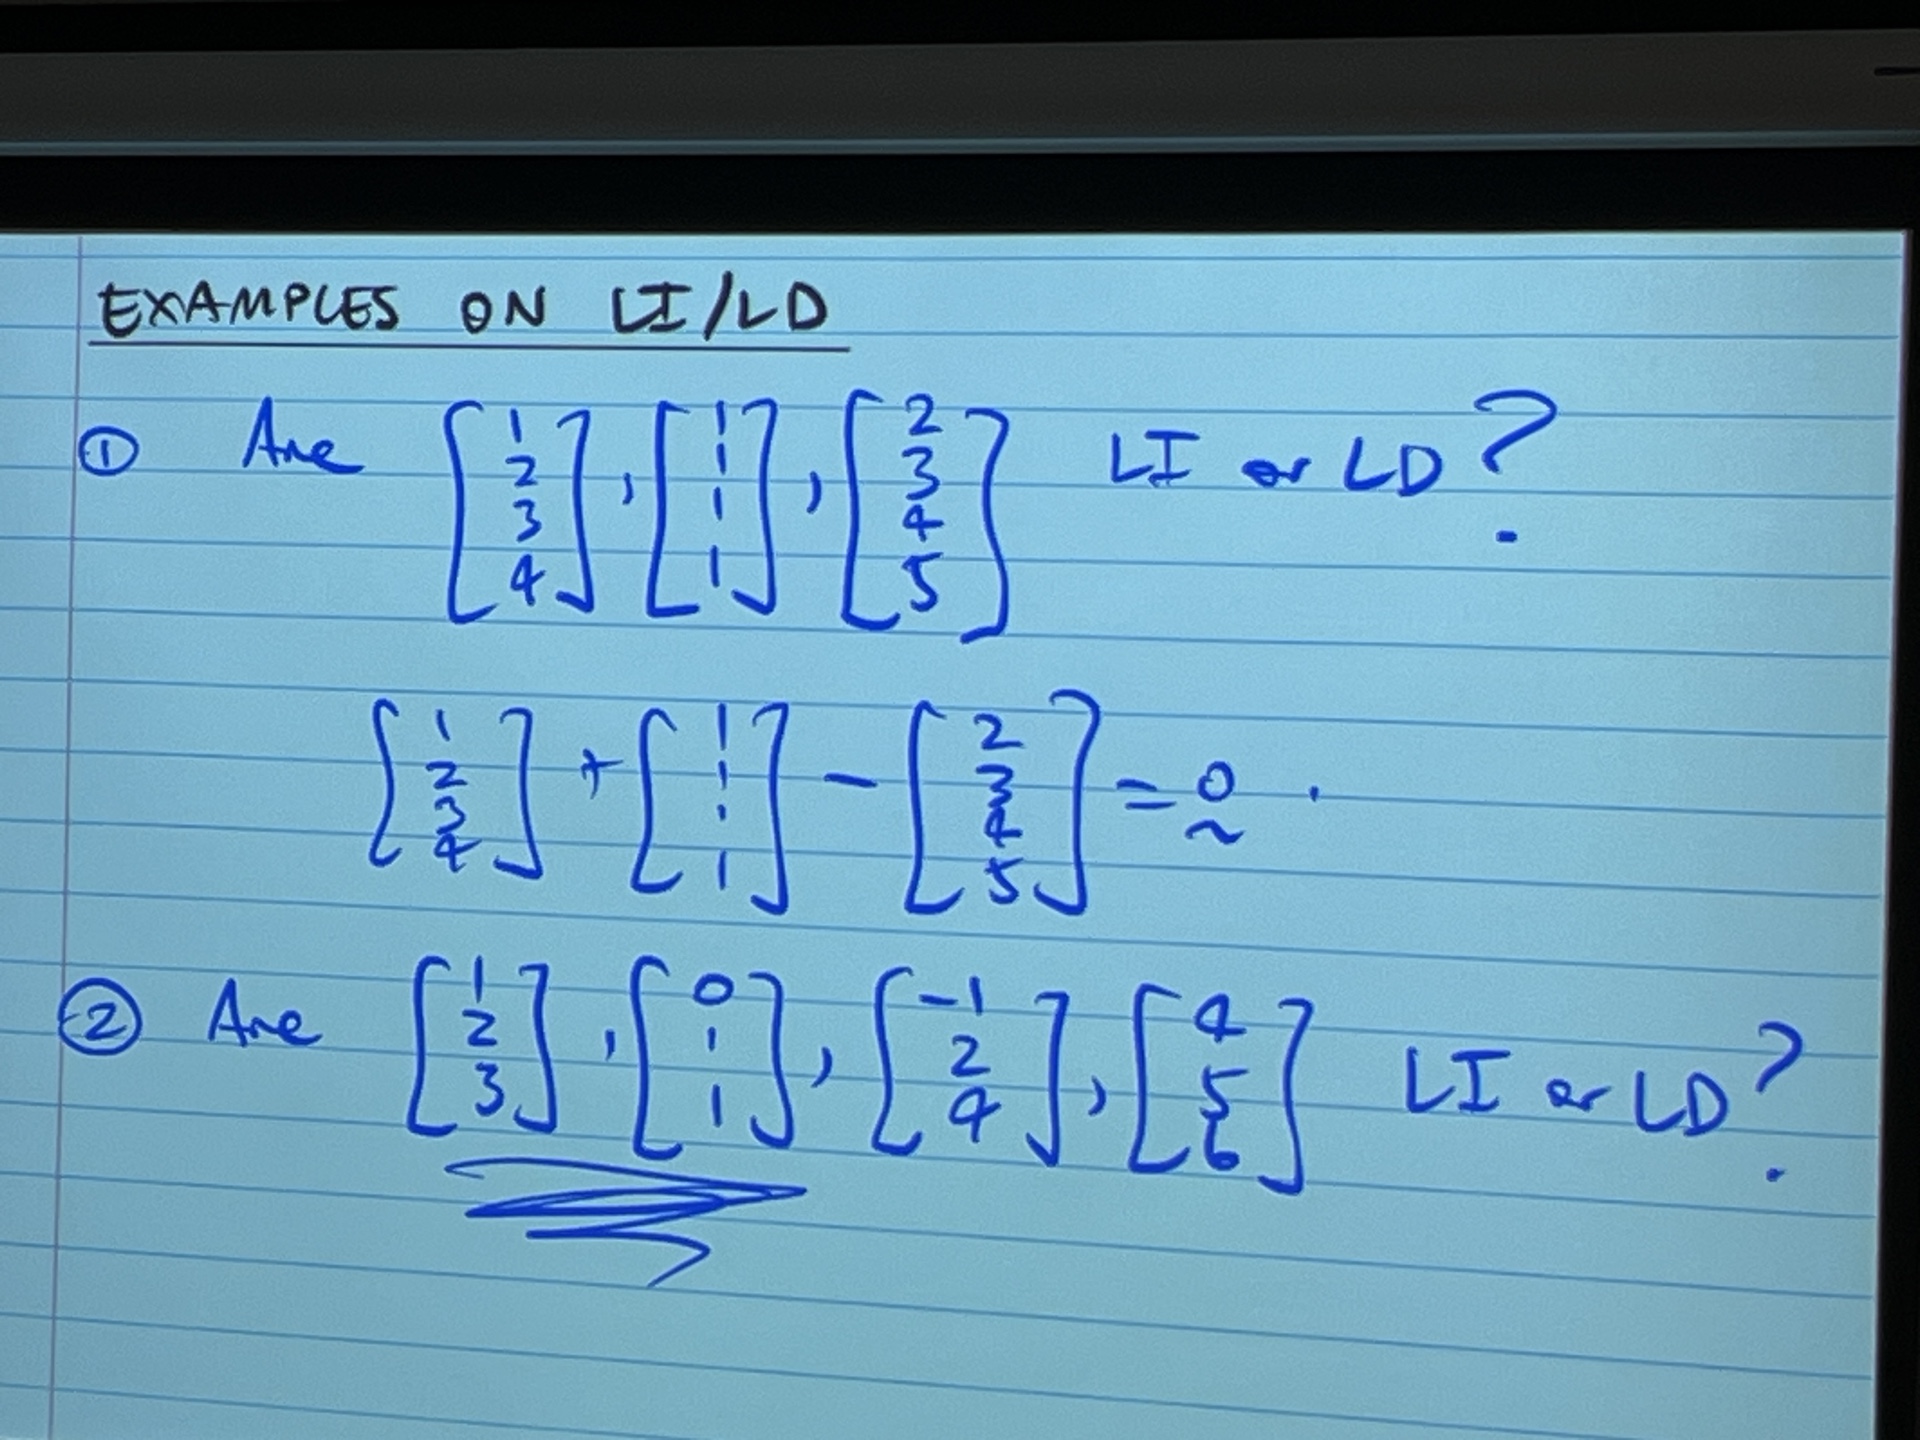 EXAMPLES ON LI/LD
① Are [1 2 3 4], [1 1 1 1], [2 3 4 5] LI or LD?
[1 2 3 4] + [1 1 1 1] - [2 3 4 5] = 0 .
② Are [1 2 3], [0 1 1], [-1 2 4], [4 5 6] LI or LD?